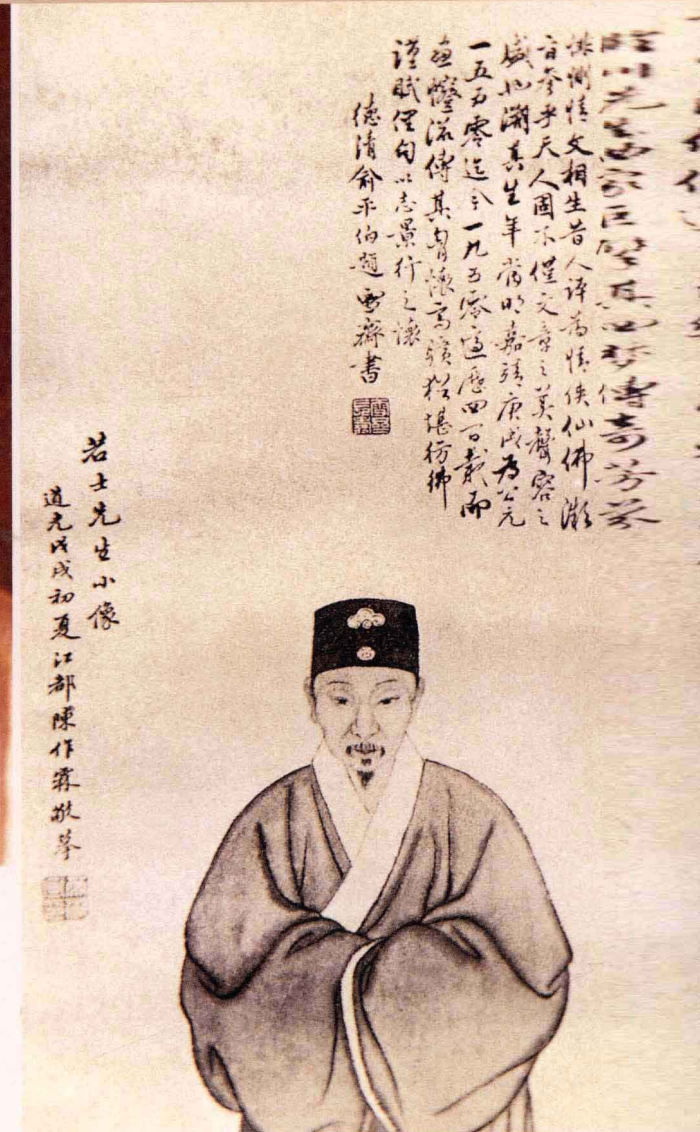 臨川先生曲家巨擘其四夢傳奇芳芬
悱惻情文相生昔人評為情俠仙佛
旨參乎天人固不僅文章之美聲容之
盛也溯其生年當明嘉靖庚戌為公元
一五五零迄今一九五零適歷四百載而
流傳其胸懷高曠猶堪彷彿
謹賦俚句以志景行之懷
德清俞平伯題 雪齋書
若士先生小像
道光戊戌初夏江都陳作霖敬摹